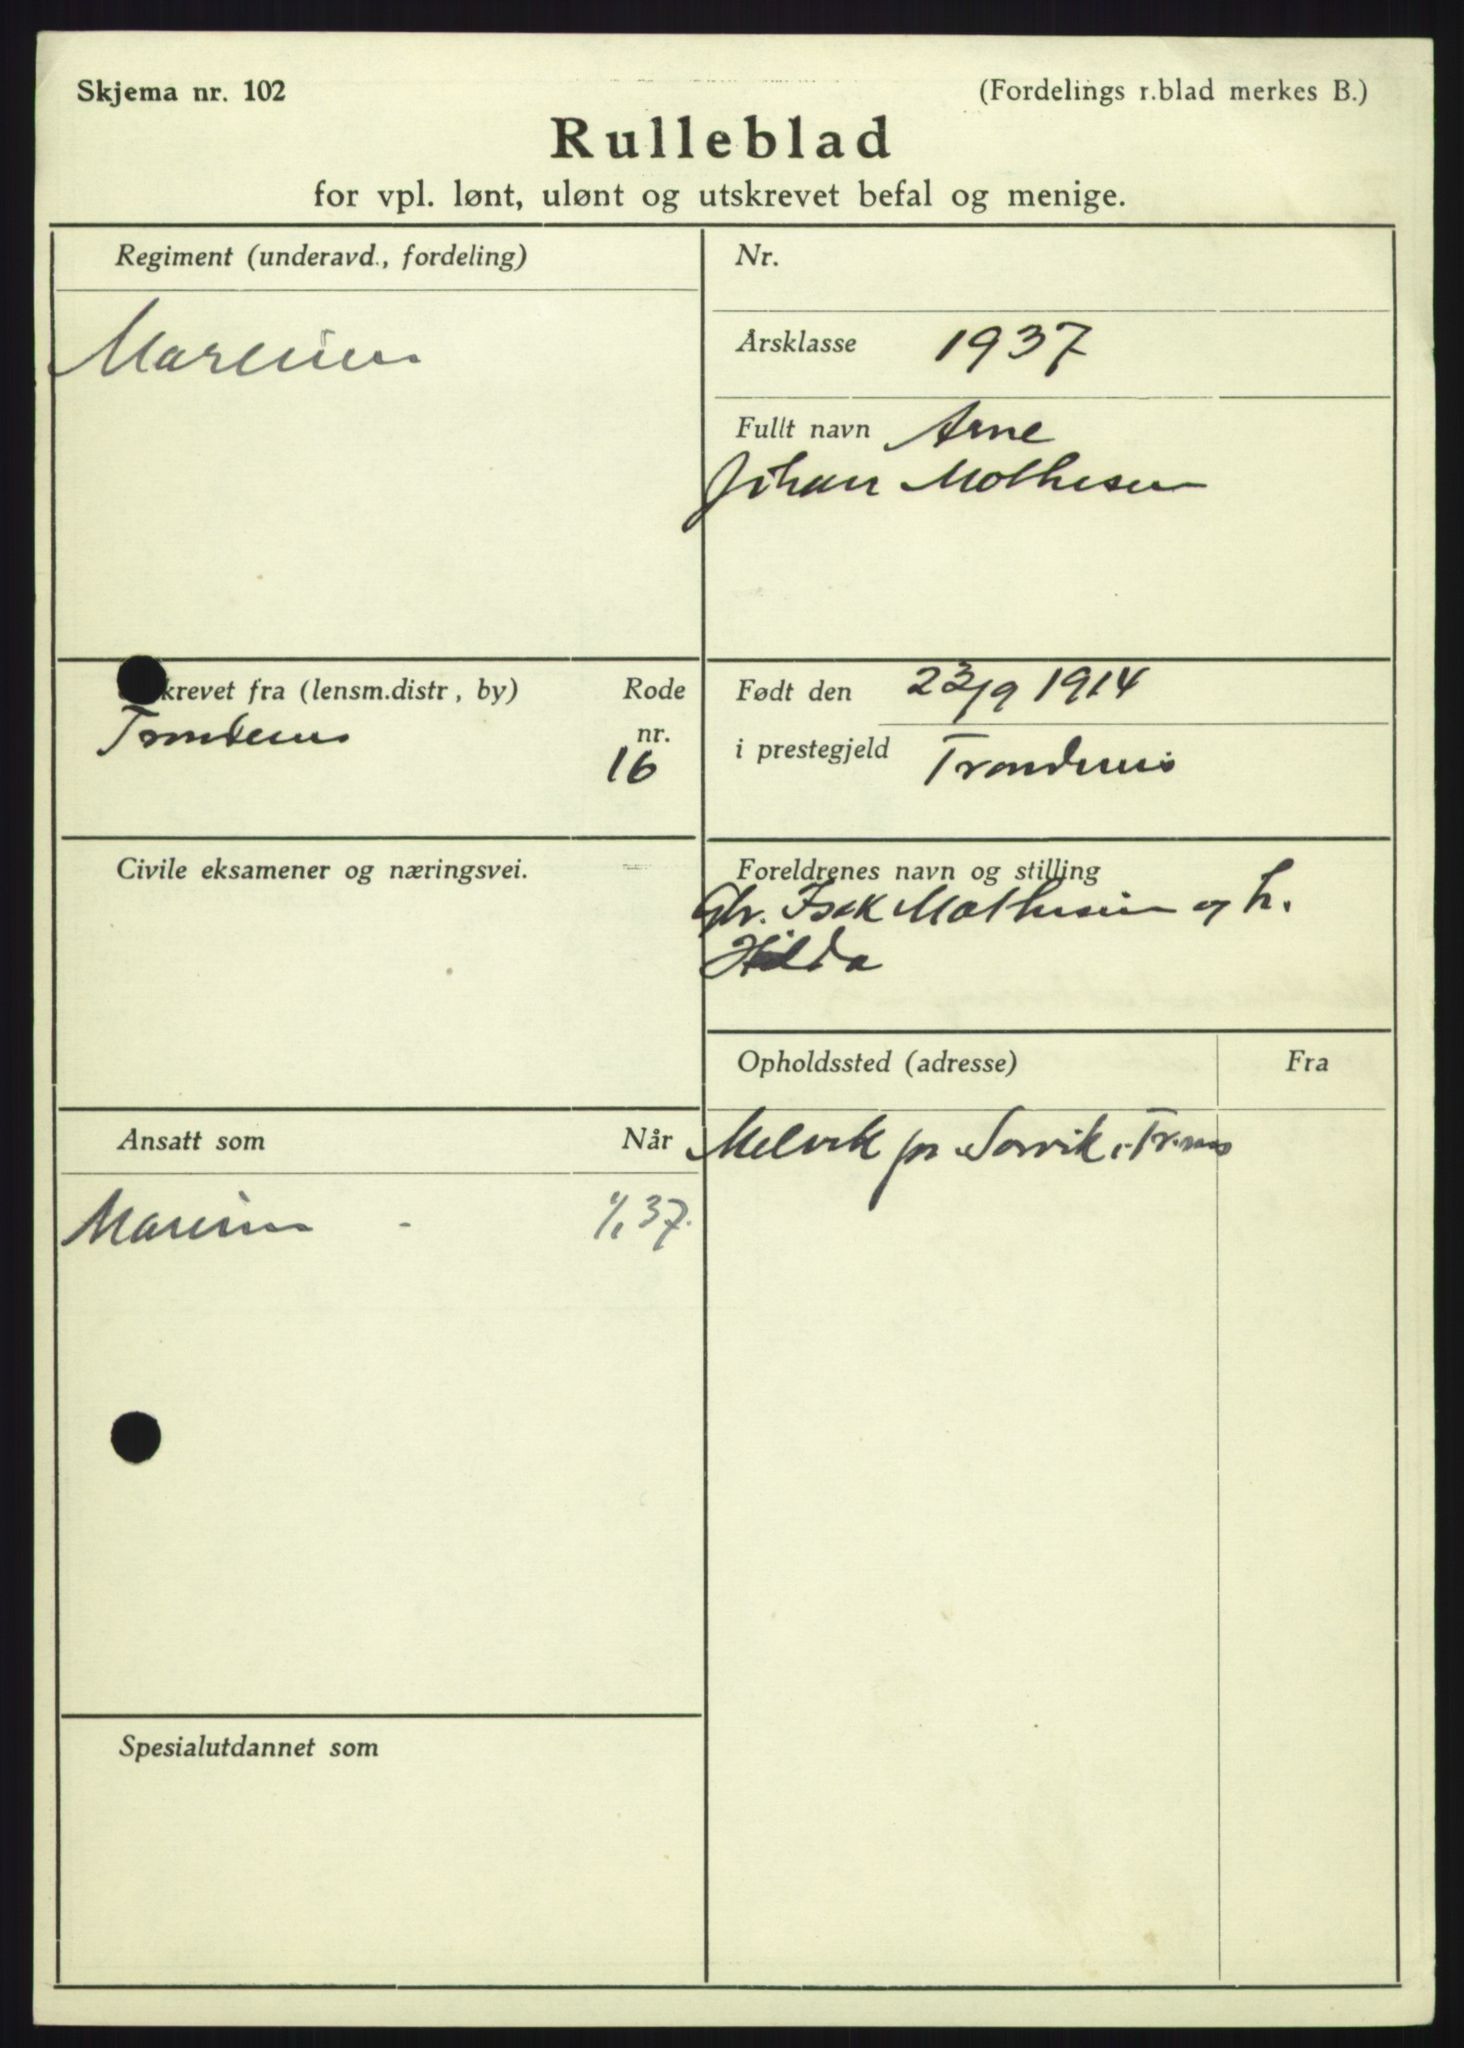 Skjema nr. 102
(Fordelings r.blad merkes B.)
Rulleblad
for vpl. lønt, ulønt og utskrevet befal og menige.
Regiment (underavd., fordeling)
Nr.
Årsklasse 1937
Fullt navn Arne
Johan Mathesen
krevet fra (lensm.distr, by)
Rode
nr.
Trondenes
16
Født den 23/9 1914
i prestegjeld Trondenes
Civile eksamener og næringsvei.
Foreldrenes navn og stilling
Gbr. Isak Mathesen og h.
Hilda
Opholdssted (adresse)
Fra
Melvik pr Sørvik i Tr.nes
Ansatt som
Når
1/1 37.
Spesialutdannet som